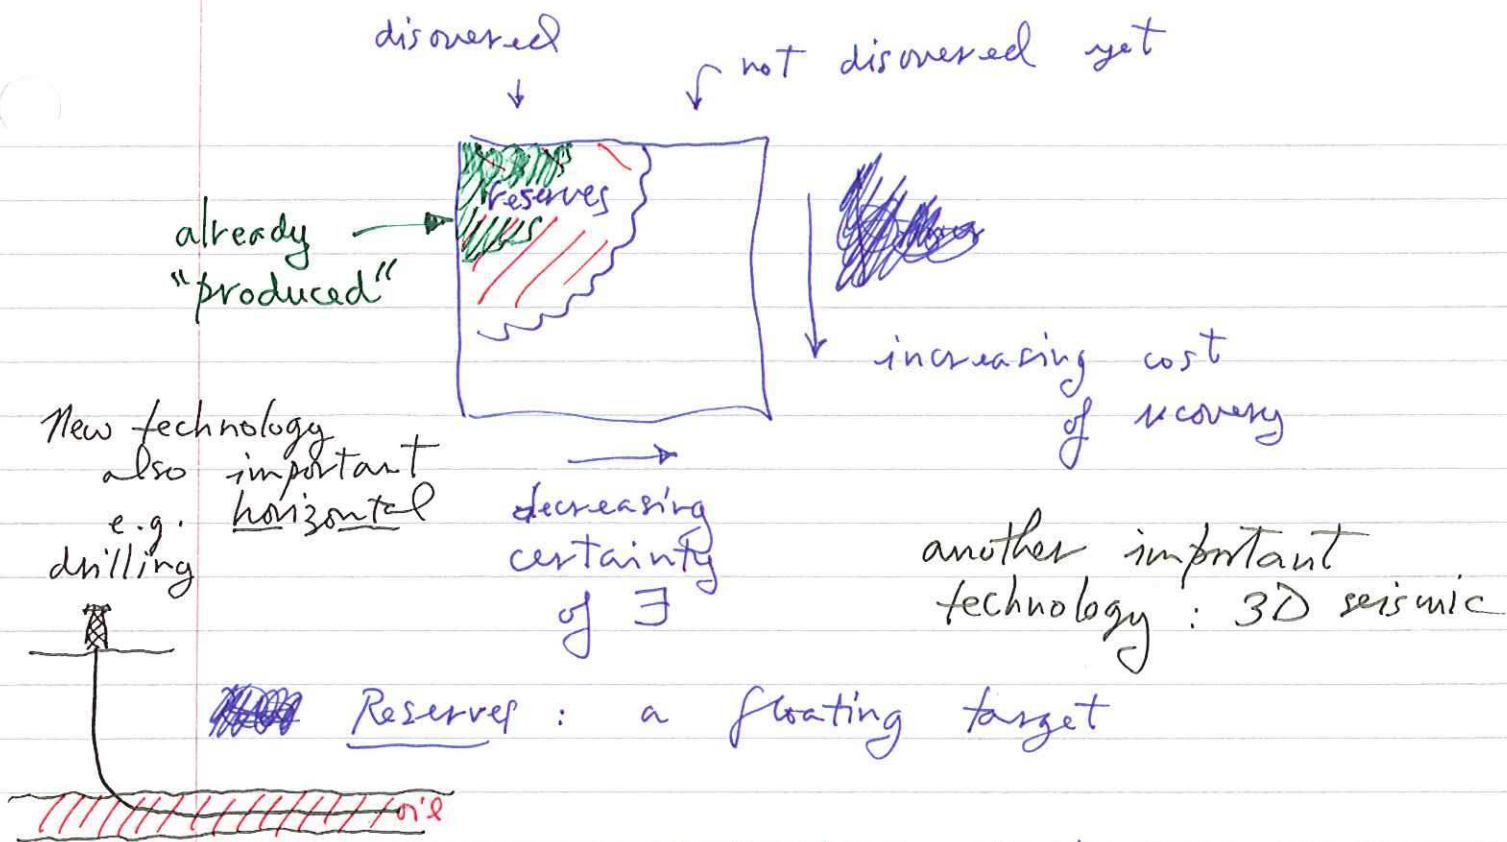 disovered
not disovered yet
reserves
already
"produced"
increasing cost
of recovery
New technology
also important
e.g. horizontal
drilling
decreasing
certainty
of ∃
another important
technology : 3D seismic
Reserves : a floating target
oil